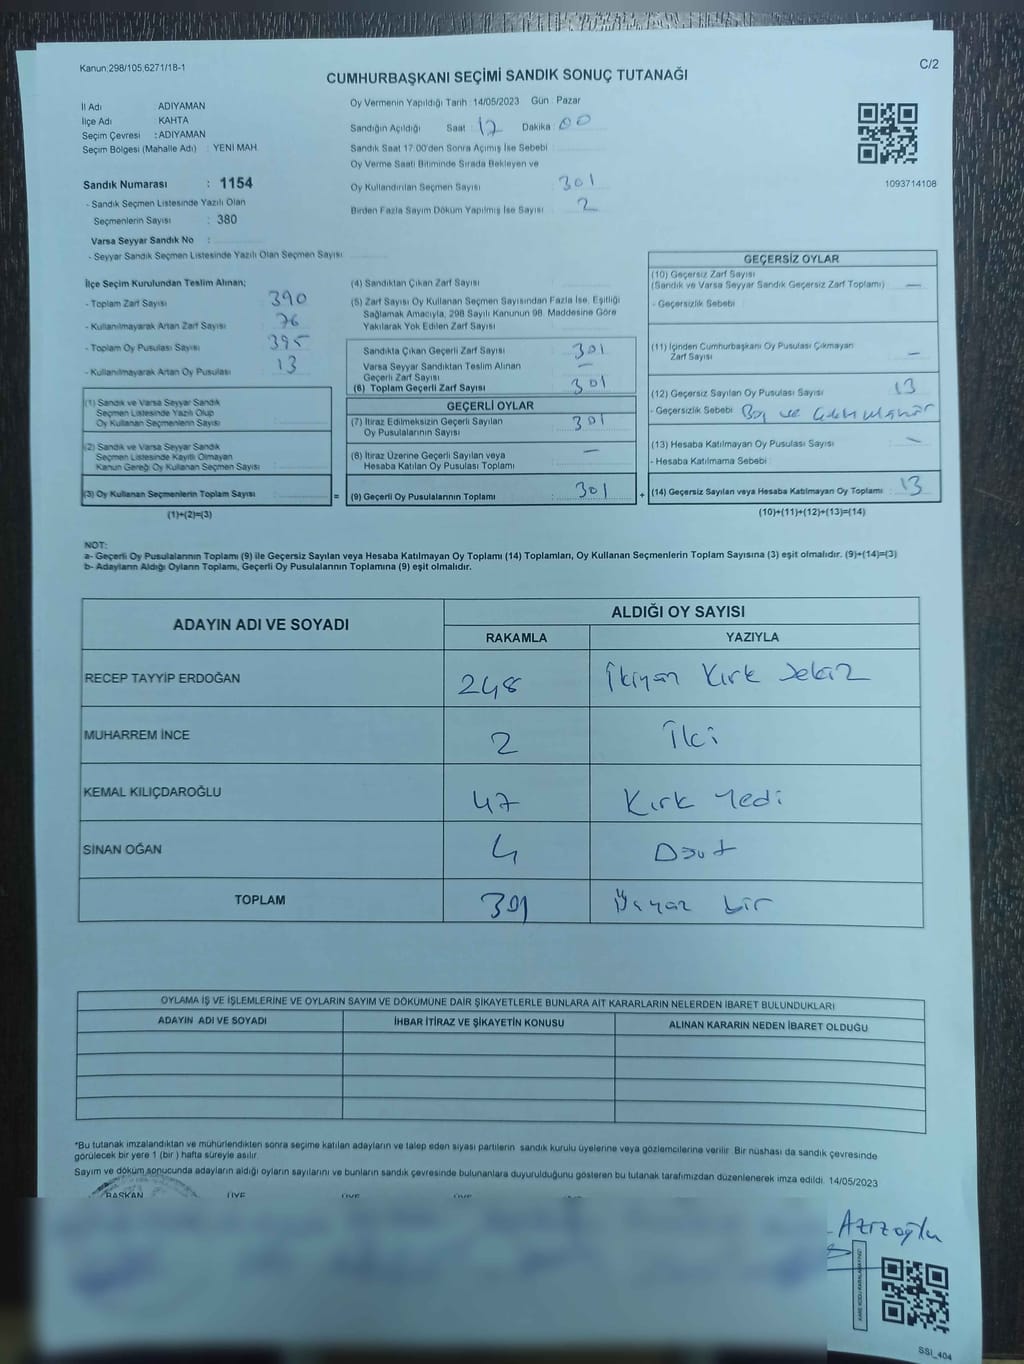 Kanun:298/105,6271/18-1
C/2
CUMHURBAŞKANI SEÇİMİ SANDIK SONUÇ TUTANAĞI
İl Adı ADIYAMAN
İlçe Adı KAHTA
Seçim Çevresi : ADIYAMAN
Seçim Bölgesi (Mahalle Adı) : YENİ MAH.
Sandık Numarası : 1154
- Sandık Seçmen Listesinde Yazılı Olan
Seçmenlerin Sayısı : 380
Varsa Seyyar Sandık No :
- Seyyar Sandık Seçmen Listesinde Yazılı Olan Seçmen Sayısı:
Oy Vermenin Yapıldığı Tarih :14/05/2023 Gün : Pazar
Sandığın Açıldığı Saat : 17 Dakika : 00
Sandık Saat 17:00'den Sonra Açımış İse Sebebi :
Oy Verme Saati Bitiminde Sırada Bekleyen ve
Oy Kullandırılan Seçmen Sayısı : 301
Birden Fazla Sayım Döküm Yapılmış İse Sayısı : 2
1093714108
İlçe Seçim Kurulundan Teslim Alınan;
- Toplam Zarf Sayısı : 390
- Kullanılmayarak Artan Zarf Sayısı : 76
- Toplam Oy Pusulası Sayısı : 395
- Kullanılmayarak Artan Oy Pusulası : 13
(1) Sandık ve Varsa Seyyar Sandık
Seçmen Listesinde Yazılı Olup
Oy Kullanan Seçmenlerin Sayısı :
(2) Sandık ve Varsa Seyyar Sandık
Seçmen Listesinde Kayıtlı Olmayan
Kanun Gereği Oy Kullanan Seçmen Sayısı :
(3) Oy Kullanan Seçmenlerin Toplam Sayısı :
(1)+(2)=(3)
=
(4) Sandıktan Çıkan Zarf Sayısı :
(5) Zarf Sayısı Oy Kullanan Seçmen Sayısından Fazla İse, Eşitliği
Sağlamak Amacıyla, 298 Sayılı Kanunun 98. Maddesine Göre
Yakılarak Yok Edilen Zarf Sayısı :
Sandıkta Çıkan Geçerli Zarf Sayısı : 301
Varsa Seyyar Sandıktan Teslim Alınan
Geçerli Zarf Sayısı : —
(6) Toplam Geçerli Zarf Sayısı : 301
GEÇERLİ OYLAR
(7) İtiraz Edilmeksizin Geçerli Sayılan
Oy Pusulalarının Sayısı : 301
(8) İtiraz Üzerine Geçerli Sayılan veya
Hesaba Katılan Oy Pusulası Toplamı : —
(9) Geçerli Oy Pusulalarının Toplamı : 301
+
GEÇERSİZ OYLAR
(10) Geçersiz Zarf Sayısı
(Sandık ve Varsa Seyyar Sandık Geçersiz Zarf Toplamı) : —
- Geçersizlik Sebebi :
(11) İçinden Cumhurbaşkanı Oy Pusulası Çıkmayan
Zarf Sayısı : —
(12) Geçersiz Sayılan Oy Pusulası Sayısı : 13
- Geçersizlik Sebebi : Boş ve
(13) Hesaba Katılmayan Oy Pusulası Sayısı : —
- Hesaba Katılmama Sebebi :
(14) Geçersiz Sayılan veya Hesaba Katılmayan Oy Toplamı : 13
(10)+(11)+(12)+(13)=(14)
NOT:
a- Geçerli Oy Pusulalarının Toplamı (9) ile Geçersiz Sayılan veya Hesaba Katılmayan Oy Toplamı (14) Toplamları, Oy Kullanan Seçmenlerin Toplam Sayısına (3) eşit olmalıdır. (9)+(14)=(3)
b- Adayların Aldığı Oyların Toplamı, Geçerli Oy Pusulalarının Toplamına (9) eşit olmalıdır.
ADAYIN ADI VE SOYADI
ALDIĞI OY SAYISI
RAKAMLA YAZIYLA
RECEP TAYYİP ERDOĞAN 248 İkiyüz Kırk Sekiz
MUHARREM İNCE 2 İki
KEMAL KILIÇDAROĞLU 47 Kırk Yedi
SİNAN OĞAN 4 Dört
TOPLAM 301 Üçyüz bir
OYLAMA İŞ VE İŞLEMLERİNE VE OYLARIN SAYIM VE DÖKÜMÜNE DAİR ŞİKAYETLERLE BUNLARA AİT KARARLARIN NELERDEN İBARET BULUNDUKLARI
ADAYIN ADI VE SOYADI İHBAR İTİRAZ VE ŞİKAYETİN KONUSU ALINAN KARARIN NEDEN İBARET OLDUĞU
*Bu tutanak imzalandıktan ve mühürlendikten sonra seçime katılan adayların ve talep eden siyasi partilerin sandık kurulu üyelerine veya gözlemcilerine verilir. Bir nüshası da sandık çevresinde
görülecek bir yere 1 (bir ) hafta süreyle asılır.
Sayım ve döküm sonucunda adayların aldığı oyların sayılarını ve bunların sandık çevresinde bulunanlara duyurulduğunu gösteren bu tutanak tarafımızdan düzenlenerek imza edildi. 14/05/2023
BAŞKAN ÜYE ÜYE ÜYE
Azizoğlu
SSI_404